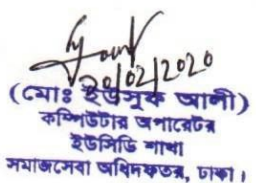 20/02/2020
(মোঃ ইউসুফ আলী)
কম্পিউটার অপারেটর
ইউসিডি শাখা
সমাজসেবা অধিদফতর, ঢাকা।